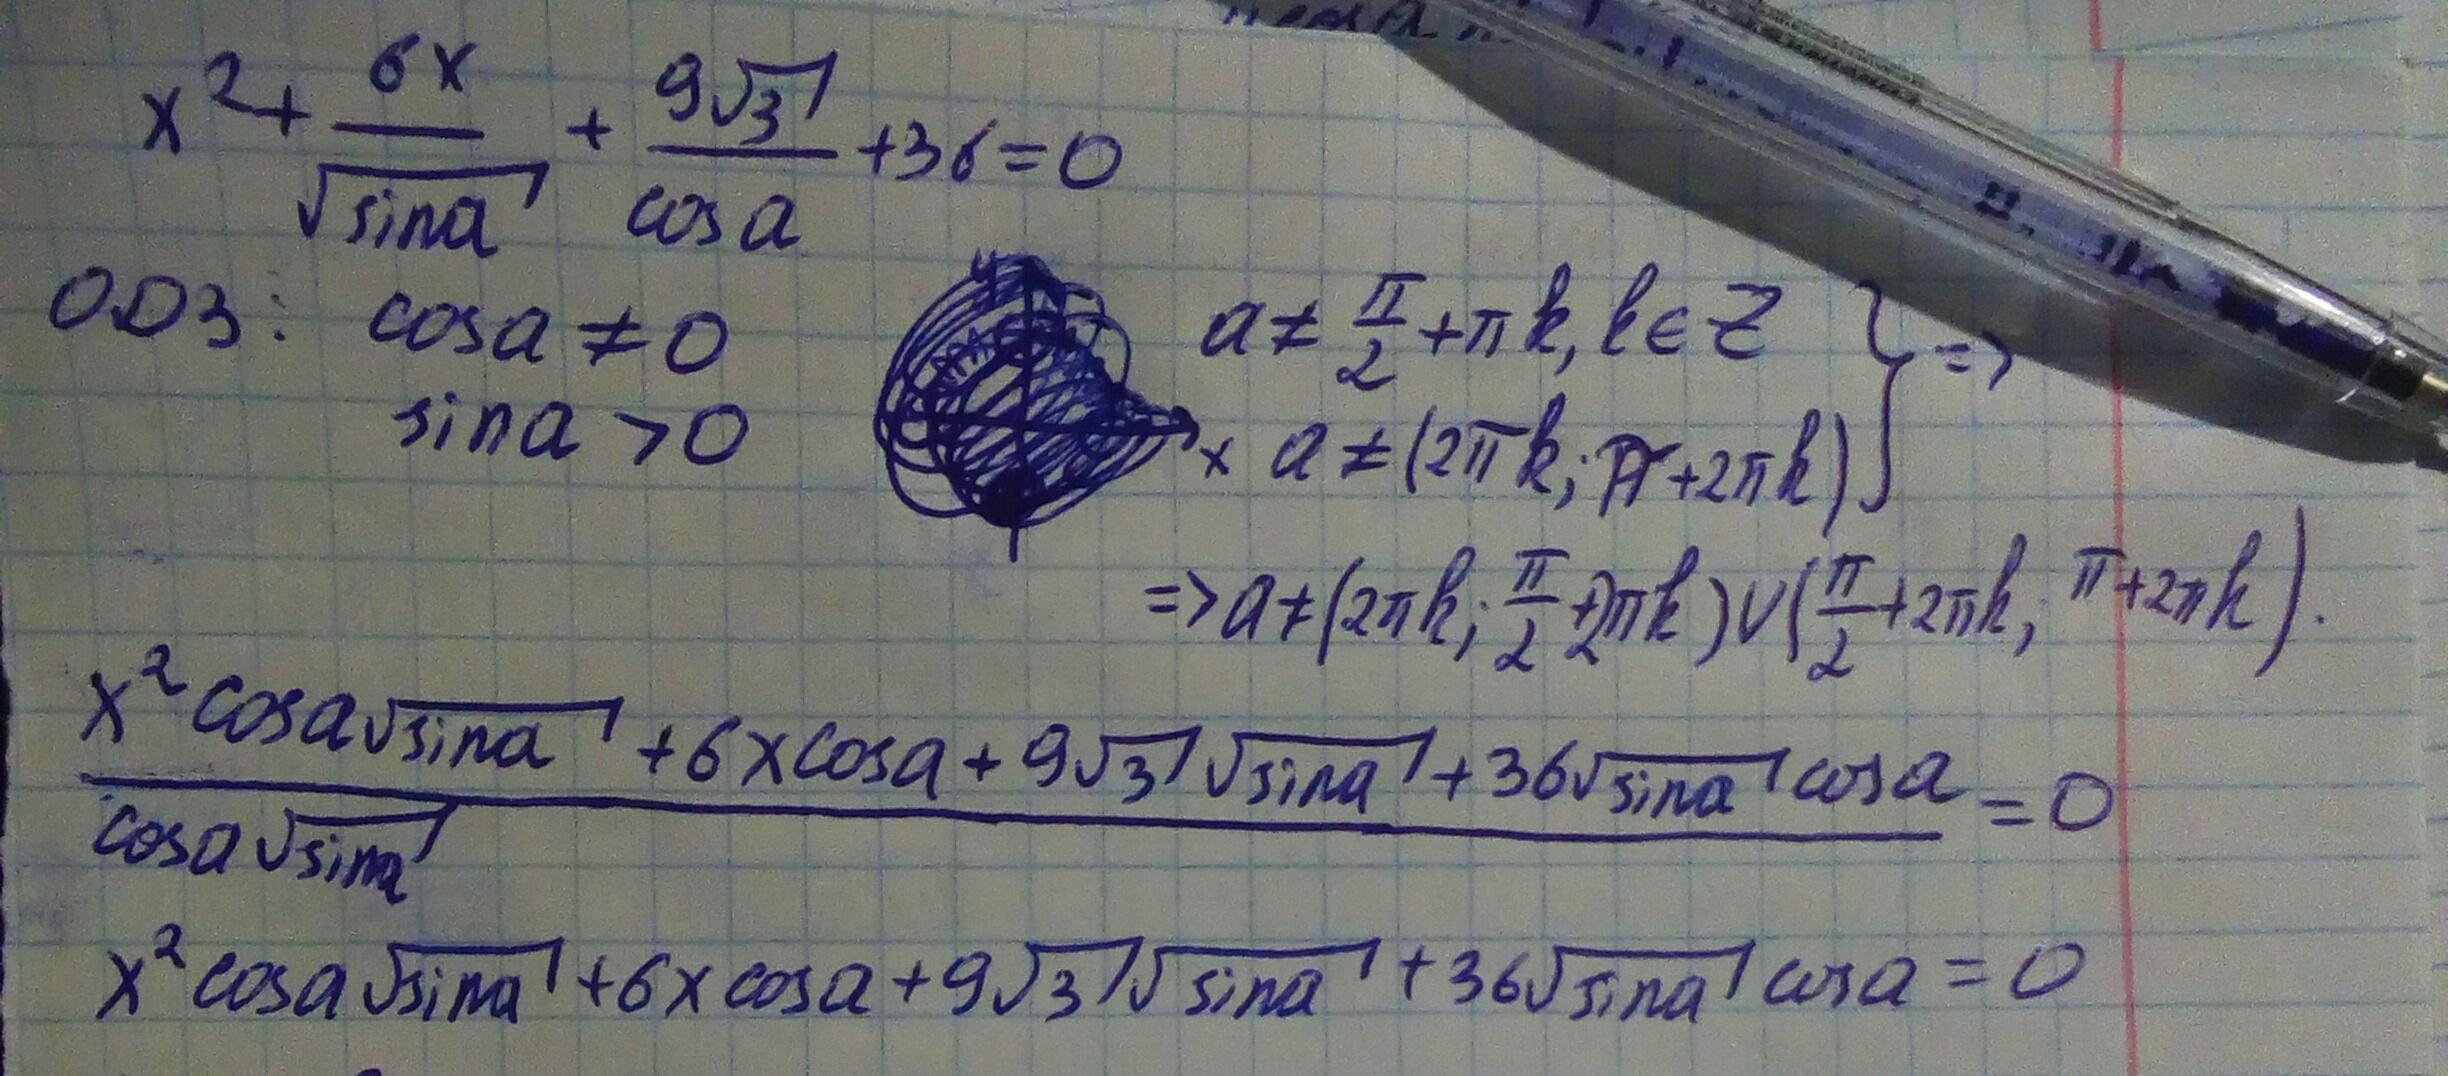 x² + 6x/√sina + 9√3/cosa + 36 = 0
ОДЗ: cosa ≠ 0
sina > 0
a ≠ π/2 + πk, k ∈ Z } =>
x a ≠ (2πk; π + 2πk)
=> a ≠ (2πk; π/2 + 2πk) ∪ (π/2 + 2πk; π + 2πk).
(x² cosa √sina + 6x cosa + 9√3 √sina + 36√sina cosa) / (cosa √sina) = 0
x² cosa √sina + 6x cosa + 9√3 √sina + 36√sina cosa = 0